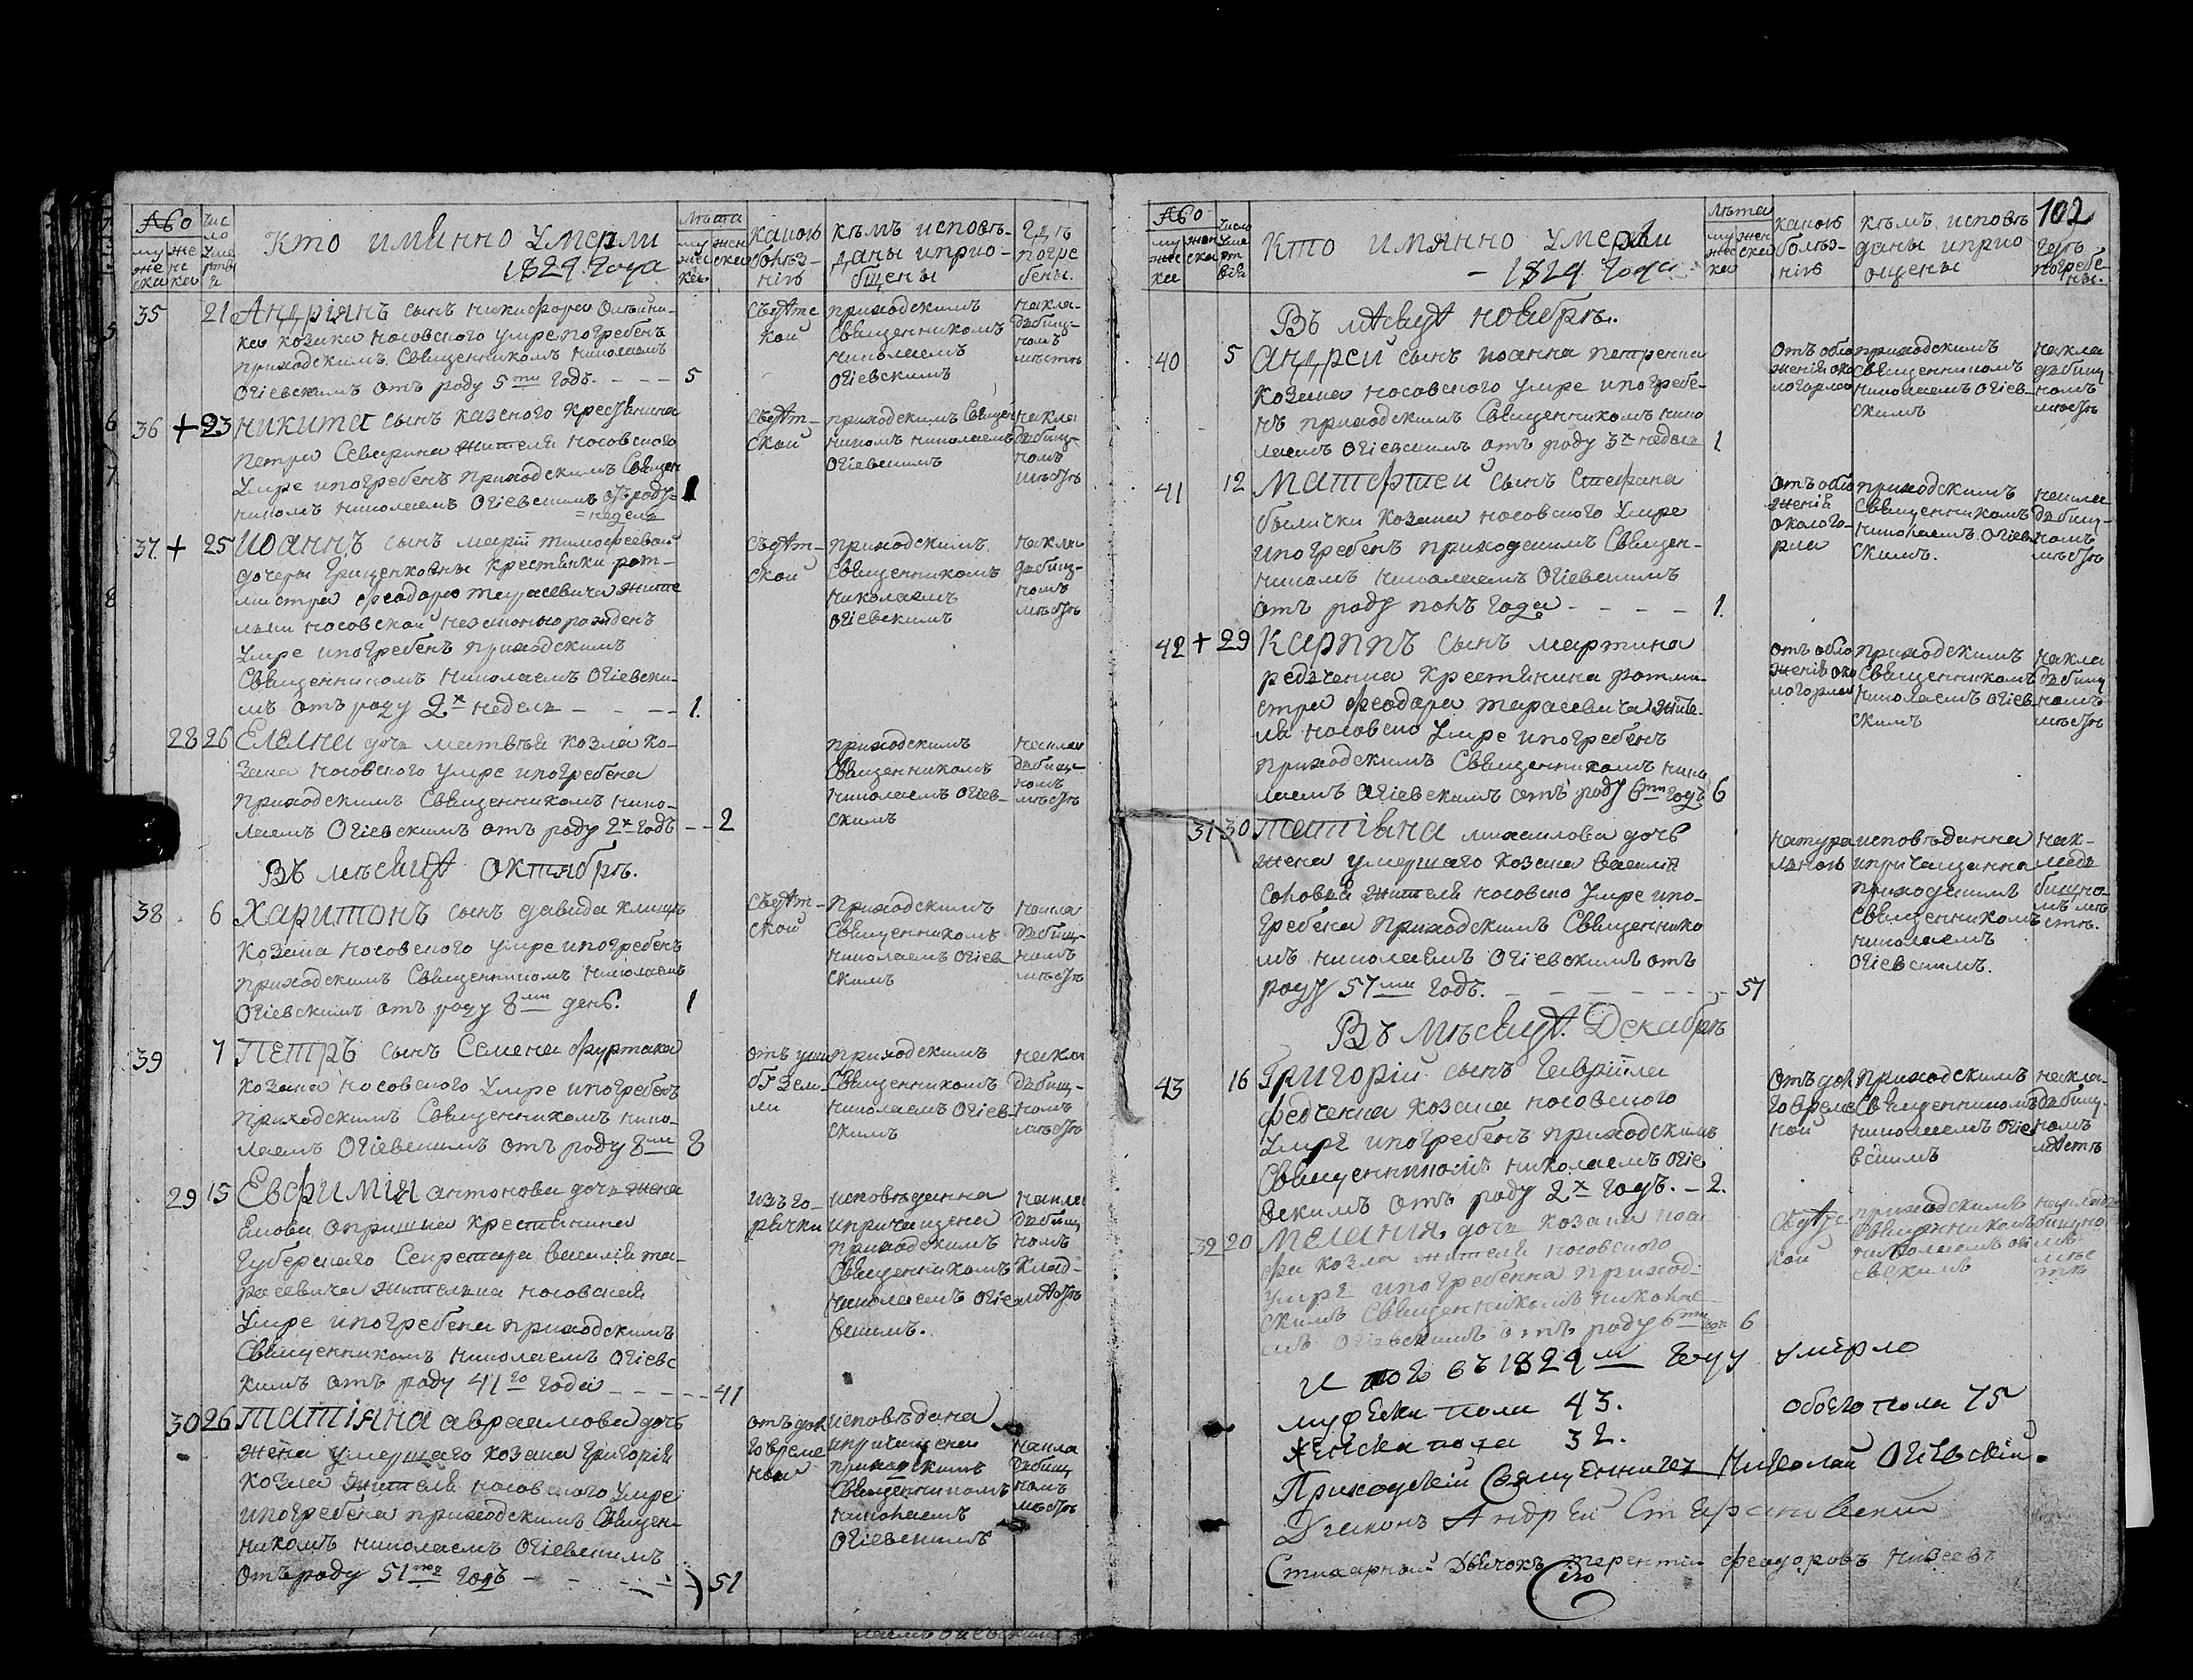 Кто иминно умерли
1824. года
лѣта
какою
болѣз-
нію
кѣмъ исповѣ-
даны и прио-
бщены
гдѣ
погре
бены.
35 21 Андріянъ сынъ никифора Олѣйни-
ка козака носовского умре погребенъ
приходскимъ Священникомъ николаемъ
Огіевскимъ отъ роду 5ти годъ. - - - 5
приходскимъ
Священникомъ
николаемъ
огіевскимъ
на кла-
дбищ-
номъ
мѣстѣ
36 + 23 никита сынъ казеного крестянина
петра Северина жителя носовского
умре и погребенъ приходскимъ Священ
никомъ николаемъ Огіевскимъ отъ роду
недель
приходскимъ Священ
никомъ николаемъ
огіевскимъ
на кла
дбищ-
номъ
мѣстѣ
37. + 25 иоаннъ сынъ маріи тимофеевой
дочеры Грищенковны крестянки рот-
мистра феодора тарасевича жите
льки носовской незаконнорожденъ
умре и погребенъ приходскимъ
Священникомъ николаемъ Огіевски-
мъ отъ роду 2х недель - - - 1.
приходскимъ
Священникомъ
николаемъ
огіевскимъ
на кла
дбищ-
номъ
мѣстѣ
28 26 Елена дочь матвѣя козла ко-
зака носовского умре и погребена
приходскимъ Священникомъ нико-
лаемъ Огіевскимъ отъ роду 2х годъ - - 2
приходскимъ
Священникомъ
николаемъ огіев-
скимъ
на кла
дбищ-
номъ
мѣстѣ
Въ мѣсяцѣ октябрѣ.
38. 6 харитонъ сынъ давида клища
козака носовского умре и погребенъ
приходскимъ Священникомъ николаемъ
Огіевскимъ отъ роду 8ми день. 1
приходскимъ
Священникомъ
николаемъ огіев
скимъ
на кла
дбищ-
номъ
мѣстѣ
39 7 петръ сынъ Семена фуртака
козака носовского умре и погребенъ
приходскимъ Священникомъ нико-
лаемъ Огіевскимъ отъ роду 8ми 8
приходскимъ
Священникомъ
николаемъ огіев-
скимъ
на кла
дбищ-
номъ
мѣстѣ
29 15 Евфимія антонова дочь жена
крестянина
Губерского Секретара василія та-
расевича жителька носовская
умре и погребена приходскимъ
Священникомъ николаемъ огіевс
кимъ отъ роду 41го года - - - - - 41
изъ го-
рячки
исповѣданна
и причащена
приходскимъ
Священникомъ
николаемъ огіе
вскимъ.
30 26 татіяна авраамова дочь
жена умершаго козака григорія
козла жителя носовского умре
и погребена приходскимъ Священ-
никомъ николаемъ огіевскимъ
отъ роду 51го годъ - - - 51
отъ дол
говреме
ной
исповѣдана
и причащена
приходскимъ
Священникомъ
николаемъ
огіевскимъ
на кла
дбищ
номъ
мѣстѣ
102
Кто имянно умерли
- 1824 года
лѣта
какою
болѣз-
нію
кѣмъ исповѣ
даны и прио
щены
гдѣ
погребе-
ны.
Въ мѣсяцѣ ноябрѣ.
40 5 андрей сынъ иоанна петренка
козака носовского умре и погребе-
нъ приходскимъ Священникомъ нико
лаемъ огіевскимъ отъ роду 3х недель 1
отъ обло
женія око
ло горла
приходскимъ
священникомъ
николаемъ огіев-
скимъ
на кла
дбищ
номъ
мѣстѣ
41 12 матфтей сынъ стефана
козака носовского умре
и погребенъ приходскимъ Священ-
никомъ николаемъ огіевскимъ
отъ роду полъ года - - - - 1.
отъ обло
женія
около го-
рла
приходскимъ
Священникомъ
николаемъ огіев
скимъ.
на кла
дбищ-
номъ
мѣстѣ
42 + 29 карппъ сынъ мартина
редченка крестянина ротми-
стра феодара тарасевича жите-
ля носовско умре и погребенъ
приходскимъ Священникомъ нико
лаемъ огіевскимъ отъ роду 6ти годъ 6
отъ обло
женія око
ло горла
приходскимъ
Священникомъ
николаемъ огіев-
скимъ
на кла
дбищ
номъ
мѣстѣ
31 30 татіяна михаилова дочь
жена умершаго козака василія
соловья жителя носовско умре и по-
гребена приходскимъ Священнико
мъ николаемъ огіевскимъ отъ
роду 57ми годъ. - - - - - - 57
натура
льною
исповѣданна
и причащанна
приходскимъ
Священникомъ
николаемъ
огіевскимъ.
на к-
ладь
бищно
мъ мѣ
стѣ.
Въ мѣсяцѣ. Декабрѣ
43 16 григорій сынъ гавріила
федченка козака носовского
умре и погребенъ приходскимъ
Священникомъ николаемъ огіе
вскимъ отъ роду 2х годъ. - 2.
отъ дол
говреме
ной
приходскимъ
Священникомъ
николаемъ огіе
вскимъ
на кла-
дбищ-
номъ
мѣстѣ
32 20 мелания, дочь козака иоси
фа козла жителя носовского
умре и погребенна приход-
скимъ Священникомъ николае
мъ огіевскимъ отъ роду 6ти год. 6
приходскимъ
Священникомъ
николаемъ огі
евскимъ
итого въ 1824м году умерло
мужеска пола 43.
обоего пола 75
женска пола 32.
Приходскій Священникъ Николай Огіевскій.
Диаконъ Андрей Стефановскій
Стихарный Дьячокъ терентій феодоровъ